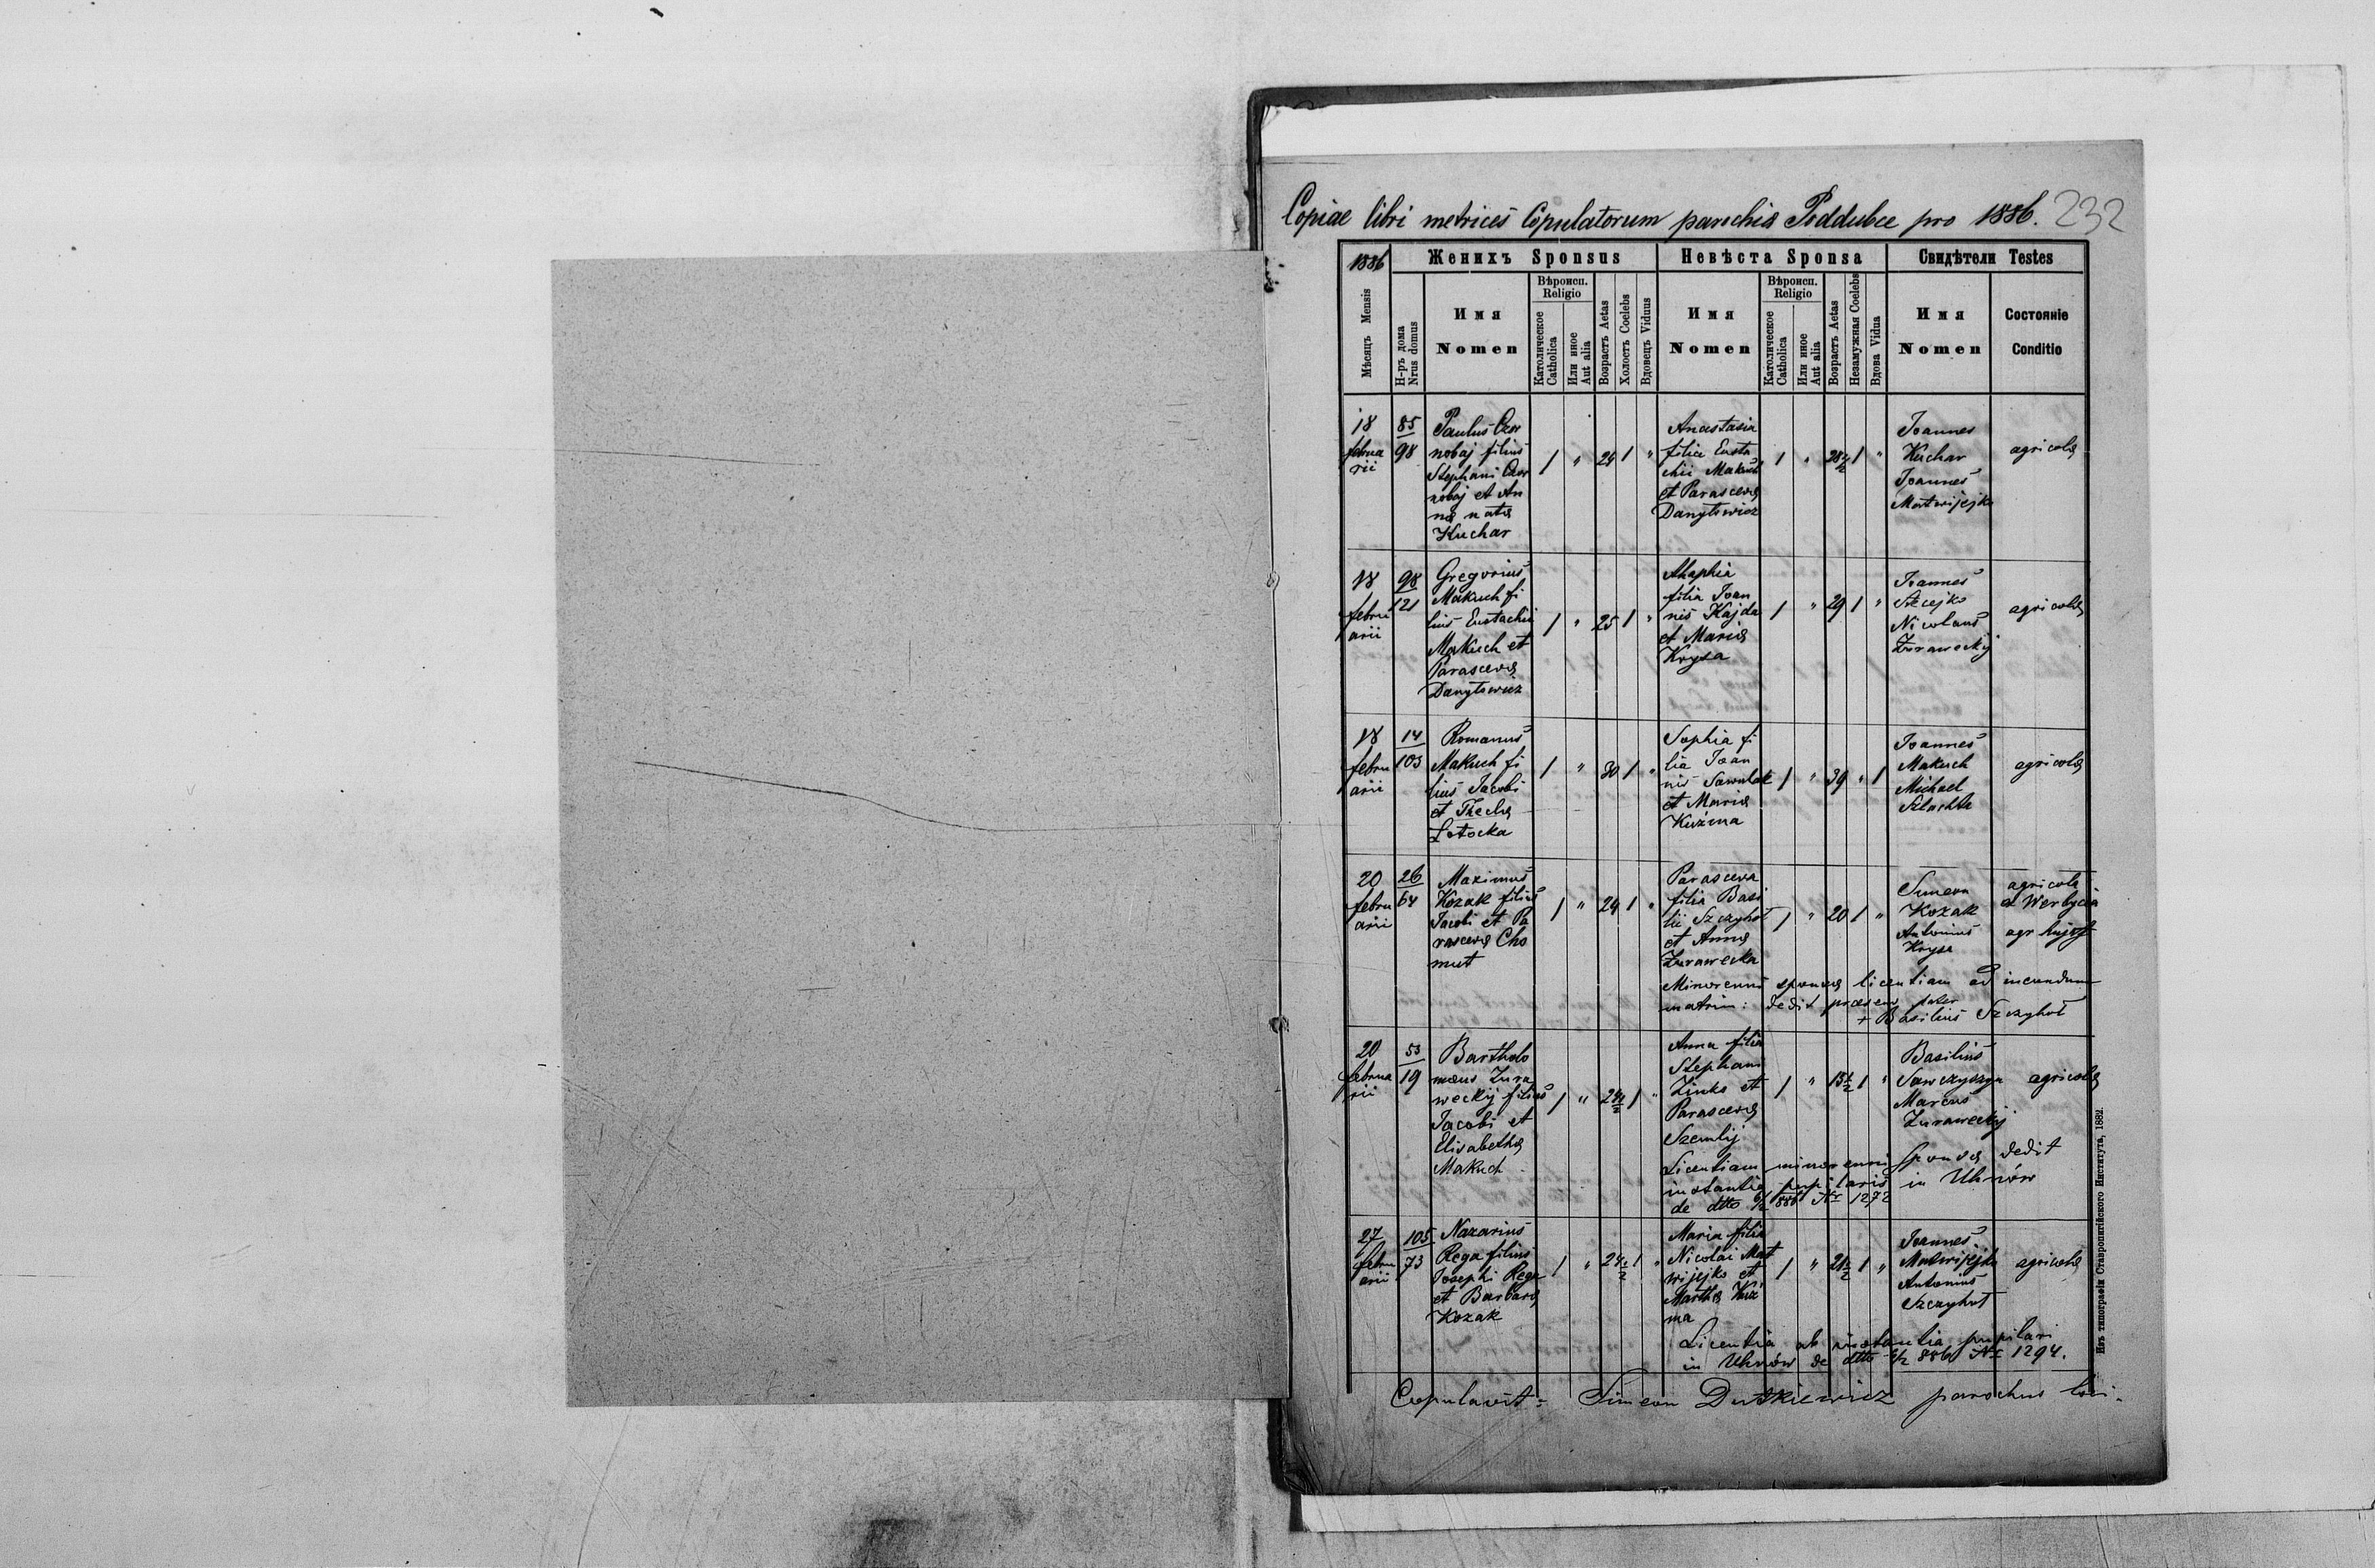 Copiae libri metrices Copulatorum parochiæ Poddubce pro 1886. 232
1886 Женихъ Sponsus Невѣста Sponsa Свидѣтели Testes
Мѣсяцъ Mensis
Н-ръ дома
Nrus domus
Имя
Nomen
Вѣроисп.
Religio
Католическое
Catholica
Или иное
Aut alia
Возрастъ Aetas
Холостъ Coelebs
Вдовецъ Viduus
Имя
Nomen
Вѣроисп.
Religio
Католическое
Catholica
Или иное
Aut alia
Возрастъ Aetas
Незамужная Coelebs
Вдова Vidua
Имя
Nomen
Состояніе
Conditio
18
februa
rii
85
98
Paulus Czor
nobaj filius
Stephani Czor
nobaj et An
næ natæ
Kuchar
1 " 24 1 "
Anastasia
filia Eusta
chii Makuch
et Parascevæ
Danylowicz
1 " 28 1/2 1 "
Joannes
Kuchar
Joannes
Matwijejko
agricolæ
18
febru
arii
98
121
Gregorius
Makuch fi
lius Eustachii
Makuch et
Parascevæ
Danylowicz
1 " 25 1 "
Ahaphia
filia Joan
nis Kajda
et Mariæ
Krysa
1 " 29 1 "
Joannes
Nicolaus
Żuraweckij
agricolæ
18
febru
arii
14
103
Romanus
Makuch fi
lius Jacobi
et Theclæ
Łotocka
1 " 30 1 "
Sophia fi
lia Joan
nis Sawulak
et Mariæ
Kuźma
1 " 39 " 1
Joannes
Makuch
Michael
Szlachta
agricolæ
20
febru
arii
26
64
Maximus
Kozak filius
Jacobi et Pa
rascevæ Cho
mut
1 " 24 1 "
Parasceva
filia Basi
lii Szczyhoł
et Annæ
Żurawecka
1 " 20 1 "
Simeon
Kozak
Antonius
Krysa
agricola
et Werbycia
agr hujus
Minorenni sponsæ licentiam ad ineundum
matrim: dedit præsens pater
+ Basilius Szczyhoł
20
februa
rii
53
19
Bartholo
mæus Żura
weckij filius
Jacobi et
Elisabethæ
Makuch
1 " 24 1/2 1 "
Anna filia
Stephani
Zinko et
Parascevæ
Szemlij
1 " 1 "
Basilius
Sawczyszyn
Marcus
Żuraweckij
agricolæ
Licentiam minorenni sponsæ dedit
instantia pupilaris in Uhnów
de dtto 886 Nr 1272
27
febru
arii
105
73
Nazarius
Rega filius
Josephi Rega
et Barbaræ
Kozak
1 " 24 1/2 1 "
Maria filia
Nicolai Mat
wijejko et
Marthæ Kuź
ma
1 " 21 1/2 1 "
Joannes
Matwijejko
Antonius
Szczyhoł
agricolæ
Licentia ab instantia pupilari
in Uhnów de dtto 886 Nr 1294.
Copulavit: Simeon Dutkiewicz parochus loci.
Изъ типографіи Ставропигійского Института, 1882.